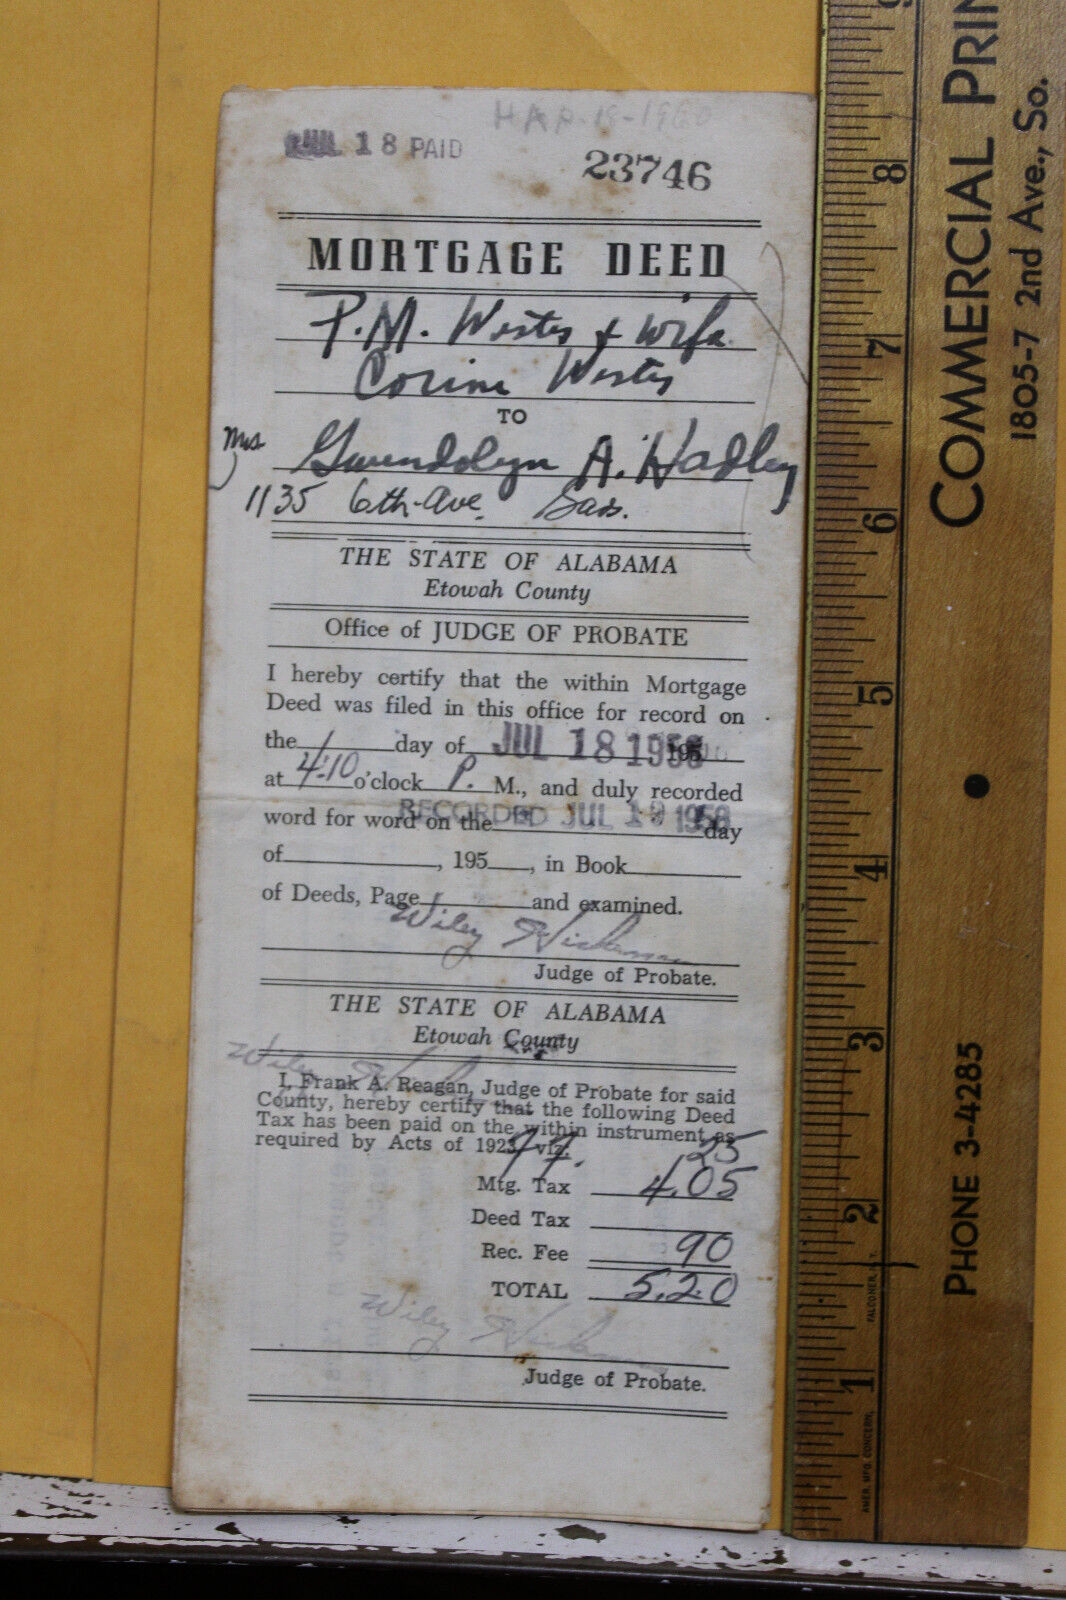 JUL 18 PAID
23746
MORTGAGE DEED
P. M. Westes + wife
Corine Westes
TO
Mrs. Gwendolyn A. Hadley
1135 6th Ave. Gads.
THE STATE OF ALABAMA
Etowah County
Office of JUDGE OF PROBATE
I hereby certify that the within Mortgage
Deed was filed in this office for record on
the day of JUL 18 1958 195
at 4:10 o'clock P. M., and duly recorded
word for word on the RECORDED JUL 19 1958 day
of , 195 , in Book
of Deeds, Page and examined.
Wiley Hickman
Judge of Probate.
THE STATE OF ALABAMA
Etowah County
Wiley
I, Frank A. Reagan, Judge of Probate for said
County, hereby certify that the following Deed
Tax has been paid on the within instrument as
required by Acts of 1923, viz.
25
Mtg. Tax 4.05
Deed Tax
Rec. Fee 90
TOTAL 5.20
Wiley Hickman
Judge of Probate.
COMMERCIAL PRIN
1805-7 2nd Ave., So.
PHONE 3-4285
9
8
7
6
5
4
3
2
1
FALCONER, N. Y.
AMER. MFG. CONCERN,